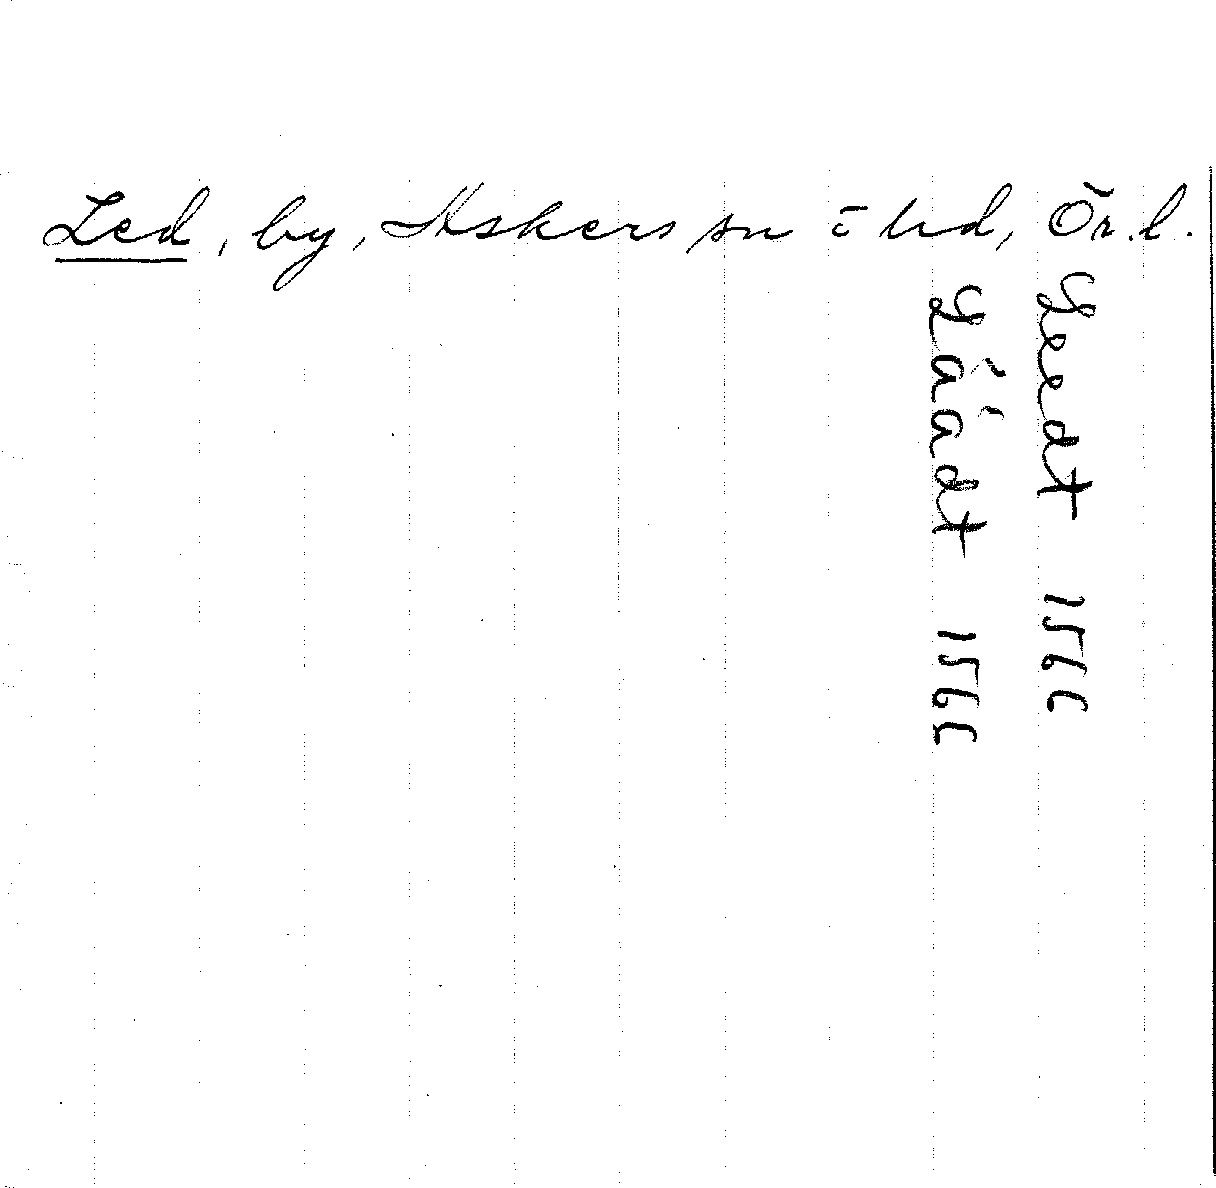 Led, by, Askers sn ō hd, Ör.l.
Leedt 1566
Läädt 1566